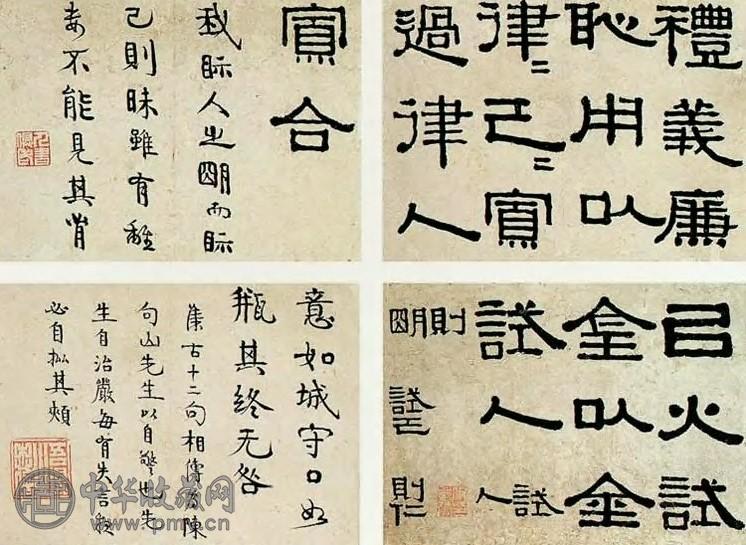 禮義廉
恥用以
律二己二寡
過律人
寡合
我眎人之朙而眎
己則昧雖有離
婁不能見其
㠯火試
金㠯金
試人試人
則朙試己則仁
意如城守口如
瓶其終无咎
集古十二句相傳為陳
句山先生以自警也先
生自治嚴每有失言歸
必自批其頰
中华收藏网